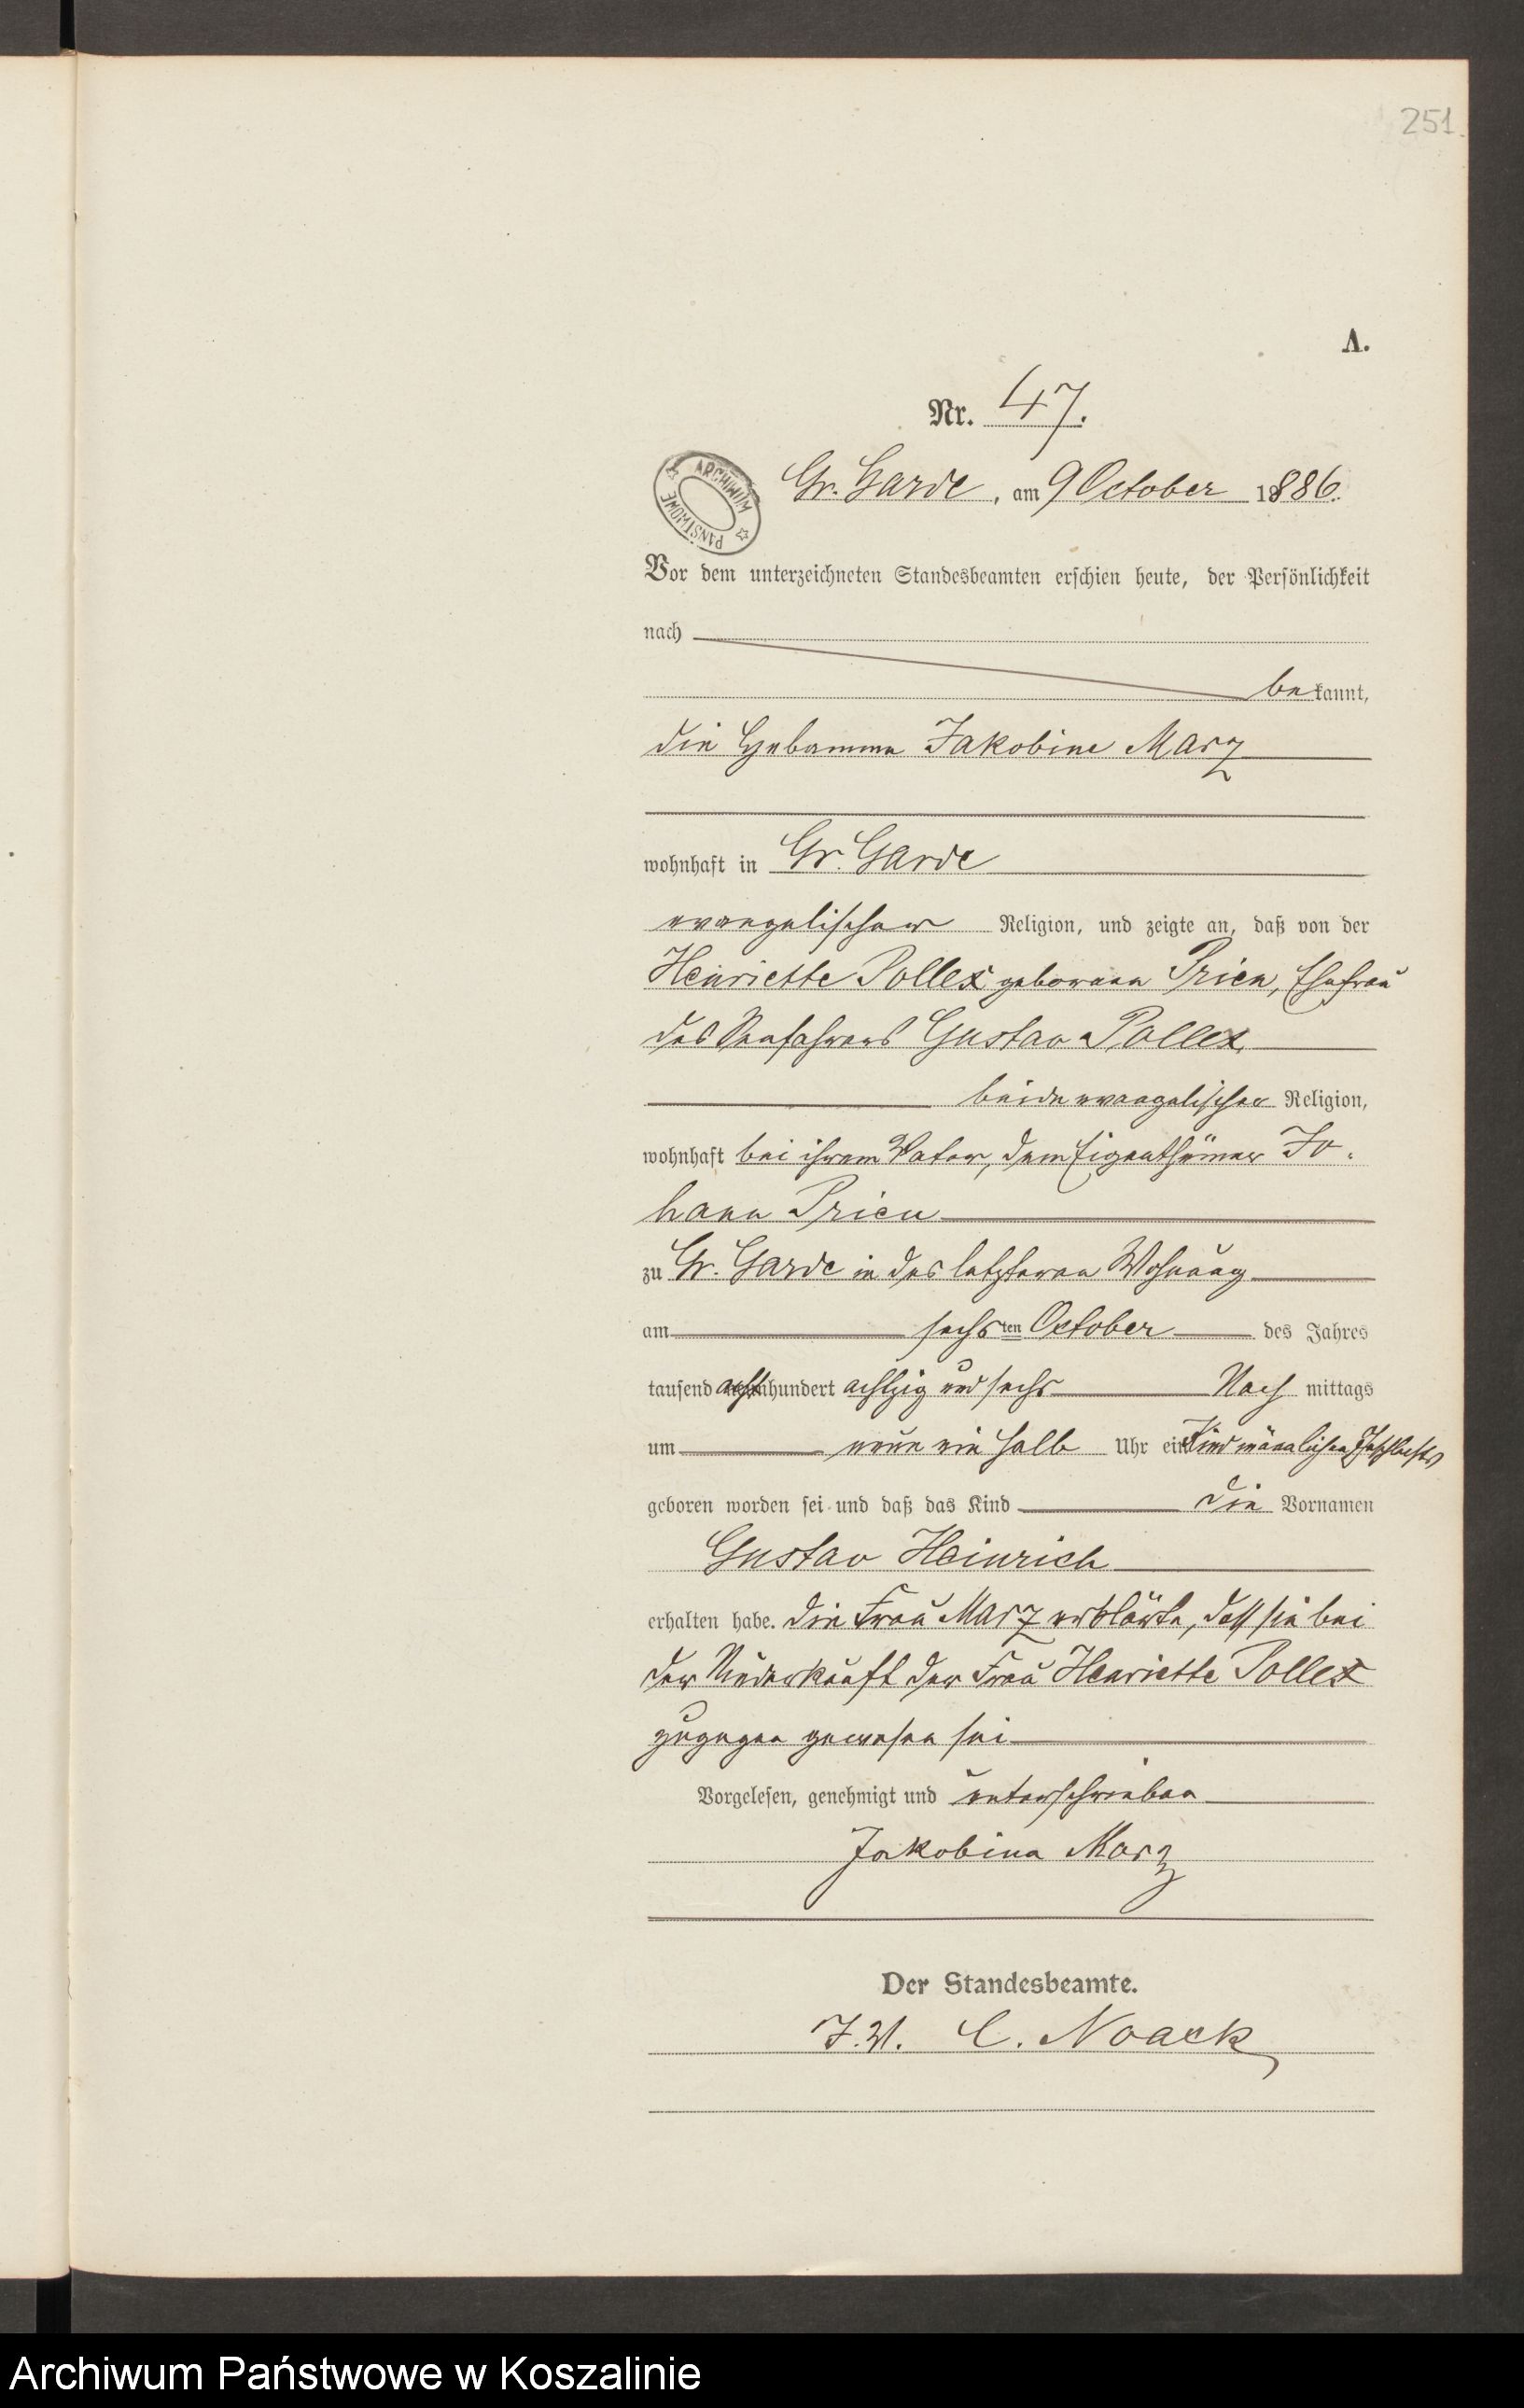 251.
A.
Nr. 47.
ARCHIWUM PAŃSTWOWE
Gr. Garde, am 9 October 1886.
Vor dem unterzeichneten Standesbeamten erschien heute, der Persönlichkeit
nach
bekannt,
die Hebamme Jakobine Marz
wohnhaft in Gr. Garde
evangelischer Religion, und zeigte an, daß von der
Henriette Pollex geborenen Prien, Ehefrau
des Seefahrers Gustav Pollex,
beide evangelischer Religion,
wohnhaft bei ihrem Vater, dem Eigenthümer Jo-
hann Prien
zu Gr. Garde in des letzteren Wohnung
am sechsten October des Jahres
tausend achthundert achtzig und sechs Nach mittags
um neun ein halb Uhr ein Kind männlichen Geschlechts
geboren worden sei und daß das Kind die Vornamen
Gustav Heinrich
erhalten habe. Die Frau Marz erklärte, daß sie bei
der Niederkunft der Frau Henriette Pollex
zugegen gewesen sei
Vorgelesen, genehmigt und unterschrieben
Jakobine Marz
Der Standesbeamte.
J.V. C. Noack
Archiwum Państwowe w Koszalinie